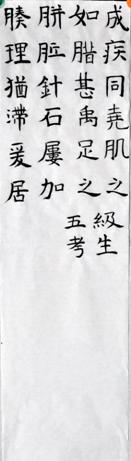 成疾同堯肌之
如腊甚禹足之
胼胝針石屢加
腠理猶滯爰居
級生
五考